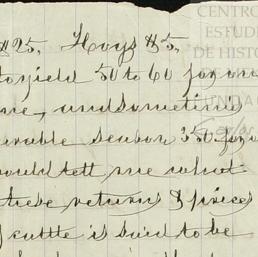 $25. Hogs $5,
to yield 50 to 60 for one
me, and sometimes
vorable season 350 for
would tell me what
these returns & prices
cattle is said to be
CENTRO
ESTUD
DE HISTO